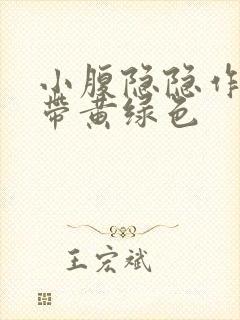 小腹隐隐作
带黄绿色
王宏斌